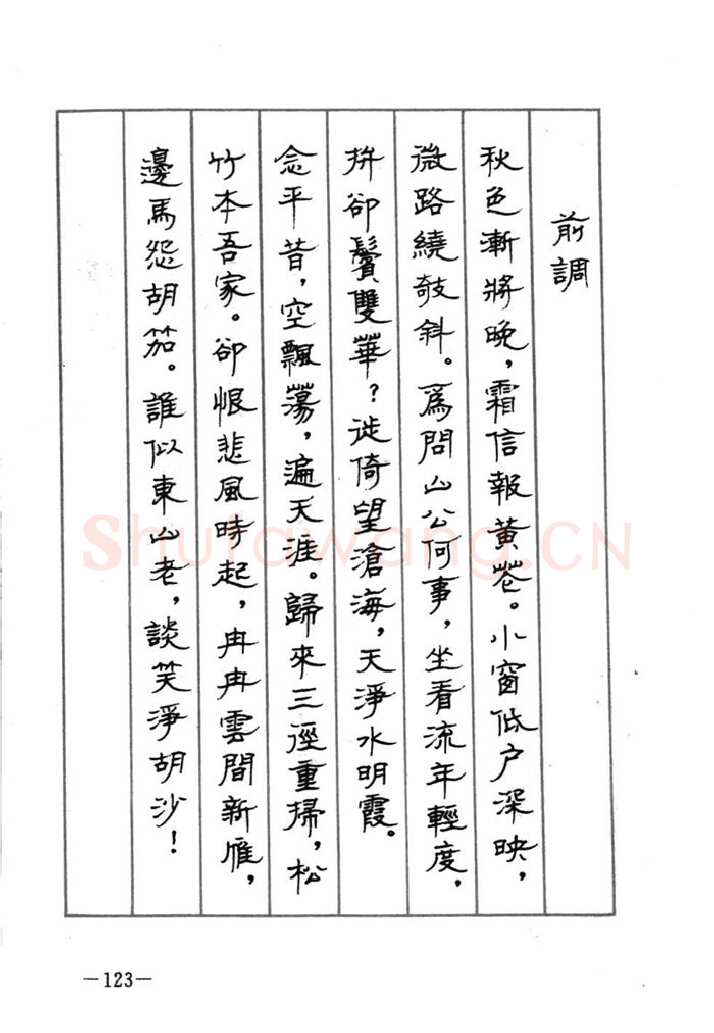 前調
秋色漸將晚，霜信報黃花。小窗低户深映，
微路繞攲斜。爲問山公何事，坐看流年輕度，
拚卻鬢雙華？徙倚望滄海，天淨水明霞。
念平昔，空飄蕩，遍天涯。歸來三徑重掃，松
竹本吾家。卻恨悲風時起，冉冉雲間新雁，
邊馬怨胡笳。誰似東山老，談笑淨胡沙！
Shufawang.CN
—123—